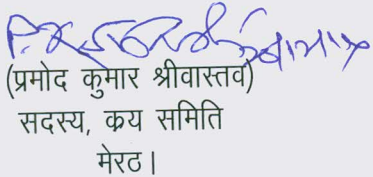 (प्रमोद कुमार श्रीवास्तव)
सदस्य, क्रय समिति
मेरठ।